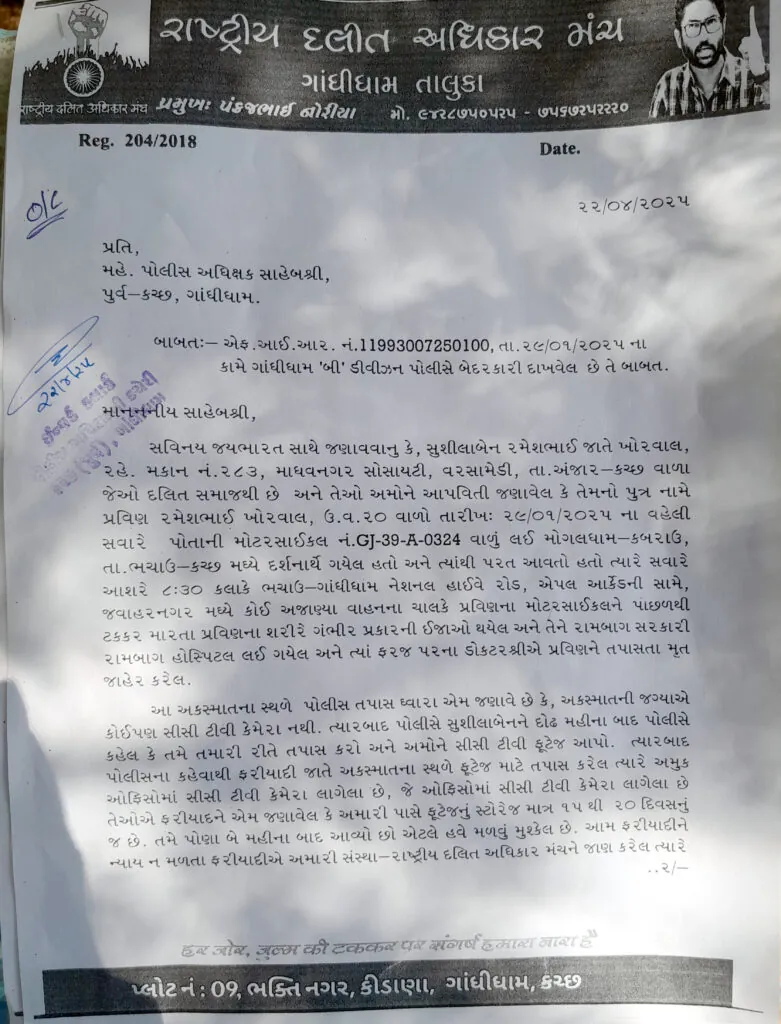 રાષ્ટ્રીય દલીત અધિકાર મંચ
ગાંધીધામ તાલુકા
રાષ્ટ્રીય દલિત અધિકાર મંચ
પ્રમુખઃ પંકજભાઈ નોરીયા મો. ૯૪૨૮૭૫૦૫૨૫ - ૭૫૬૭૨૫૨૨૨૦
Reg. 204/2018 Date.
૨૨/૦૪/૨૦૨૫
O/C
પ્રતિ,
મહે. પોલીસ અધિક્ષક સાહેબશ્રી,
પુર્વ–કચ્છ, ગાંધીધામ.
બાબતઃ– એફ.આઈ.આર. નં.11993007250100, તા.૨૯/૦૧/૨૦૨૫ ના
કામે ગાંધીધામ 'બી' ડીવીઝન પોલીસે બેદરકારી દાખવેલ છે તે બાબત.
૨૨/૪/૨૫
માનનમીય સાહેબશ્રી,
સવિનય જયભારત સાથે જણાવવાનુ કે, સુશીલાબેન રમેશભાઈ જાતે ખોરવાલ,
રહે. મકાન નં.૨૮૩, માધવનગર સોસાયટી, વરસામેડી, તા.અંજાર–કચ્છ વાળા
જેઓ દલિત સમાજથી છે અને તેઓ અમોને આપવિતી જણાવેલ કે તેમનો પુત્ર નામે
પ્રવિણ રમેશભાઈ ખોરવાલ, ઉ.વ.૨૦ વાળો તારીખઃ ૨૯/૦૧/૨૦૨૫ ના વહેલી
સવારે પોતાની મોટરસાઈકલ નં.GJ-39-A-0324 વાળું લઈ મોગલધામ–કબરાઉ,
તા.ભચાઉ–કચ્છ મધ્યે દર્શનાર્થે ગયેલ હતો અને ત્યાંથી પરત આવતો હતો ત્યારે સવારે
આશરે ૮:૩૦ કલાકે ભચાઉ–ગાંધીધામ નેશનલ હાઈવે રોડ, એપલ આર્કેડની સામે,
જવાહરનગર મધ્યે કોઈ અજાણ્યા વાહનના ચાલકે પ્રવિણના મોટરસાઈકલને પાછળથી
ટકકર મારતા પ્રવિણના શરીરે ગંભીર પ્રકારની ઈજાઓ થયેલ અને તેને રામબાગ સરકારી
રામબાગ હોસ્પિટલ લઈ ગયેલ અને ત્યાં ફરજ પરના ડોકટરશ્રીએ પ્રવિણને તપાસતા મૃત
જાહેર કરેલ.
આ અકસ્માતના સ્થળે પોલીસ તપાસ ધ્વારા એમ જણાવે છે કે, અકસ્માતની જગ્યાએ
કોઈપણ સીસી ટીવી કેમેરા નથી. ત્યારબાદ પોલીસે સુશીલાબેનને દોઢ મહીના બાદ પોલીસે
કહેલ કે તમે તમારી રીતે તપાસ કરો અને અમોને સીસી ટીવી ફૂટેજ આપો. ત્યારબાદ
પોલીસના કહેવાથી ફરીયાદી જાતે અકસ્માતના સ્થળે ફૂટેજ માટે તપાસ કરેલ ત્યારે અમુક
ઓફિસોમાં સીસી ટીવી કેમેરા લાગેલા છે, જે ઓફિસોમાં સીસી ટીવી કેમેરા લાગેલા છે
તેઓએ ફરીયાદને એમ જણાવેલ કે અમારી પાસે ફૂટેજનું સ્ટોરેજ માત્ર ૧૫ થી ૨૦ દિવસનું
જ છે. તમે પોણા બે મહીના બાદ આવ્યો છો એટલે હવે મળવું મુશ્કેલ છે. આમ ફરીયાદીને
ન્યાય ન મળતા ફરીયાદીએ અમારી સંસ્થા–રાષ્ટ્રીય દલિત અધિકાર મંચને જાણ કરેલ ત્યારે
..૨/–
હર જોર, જુલ્મ કી ટકકર પર સંઘર્ષ હમારા નારા હૈ
પ્લોટ નં : 09, ભક્તિ નગર, કીડાણા, ગાંધીધામ, કચ્છ